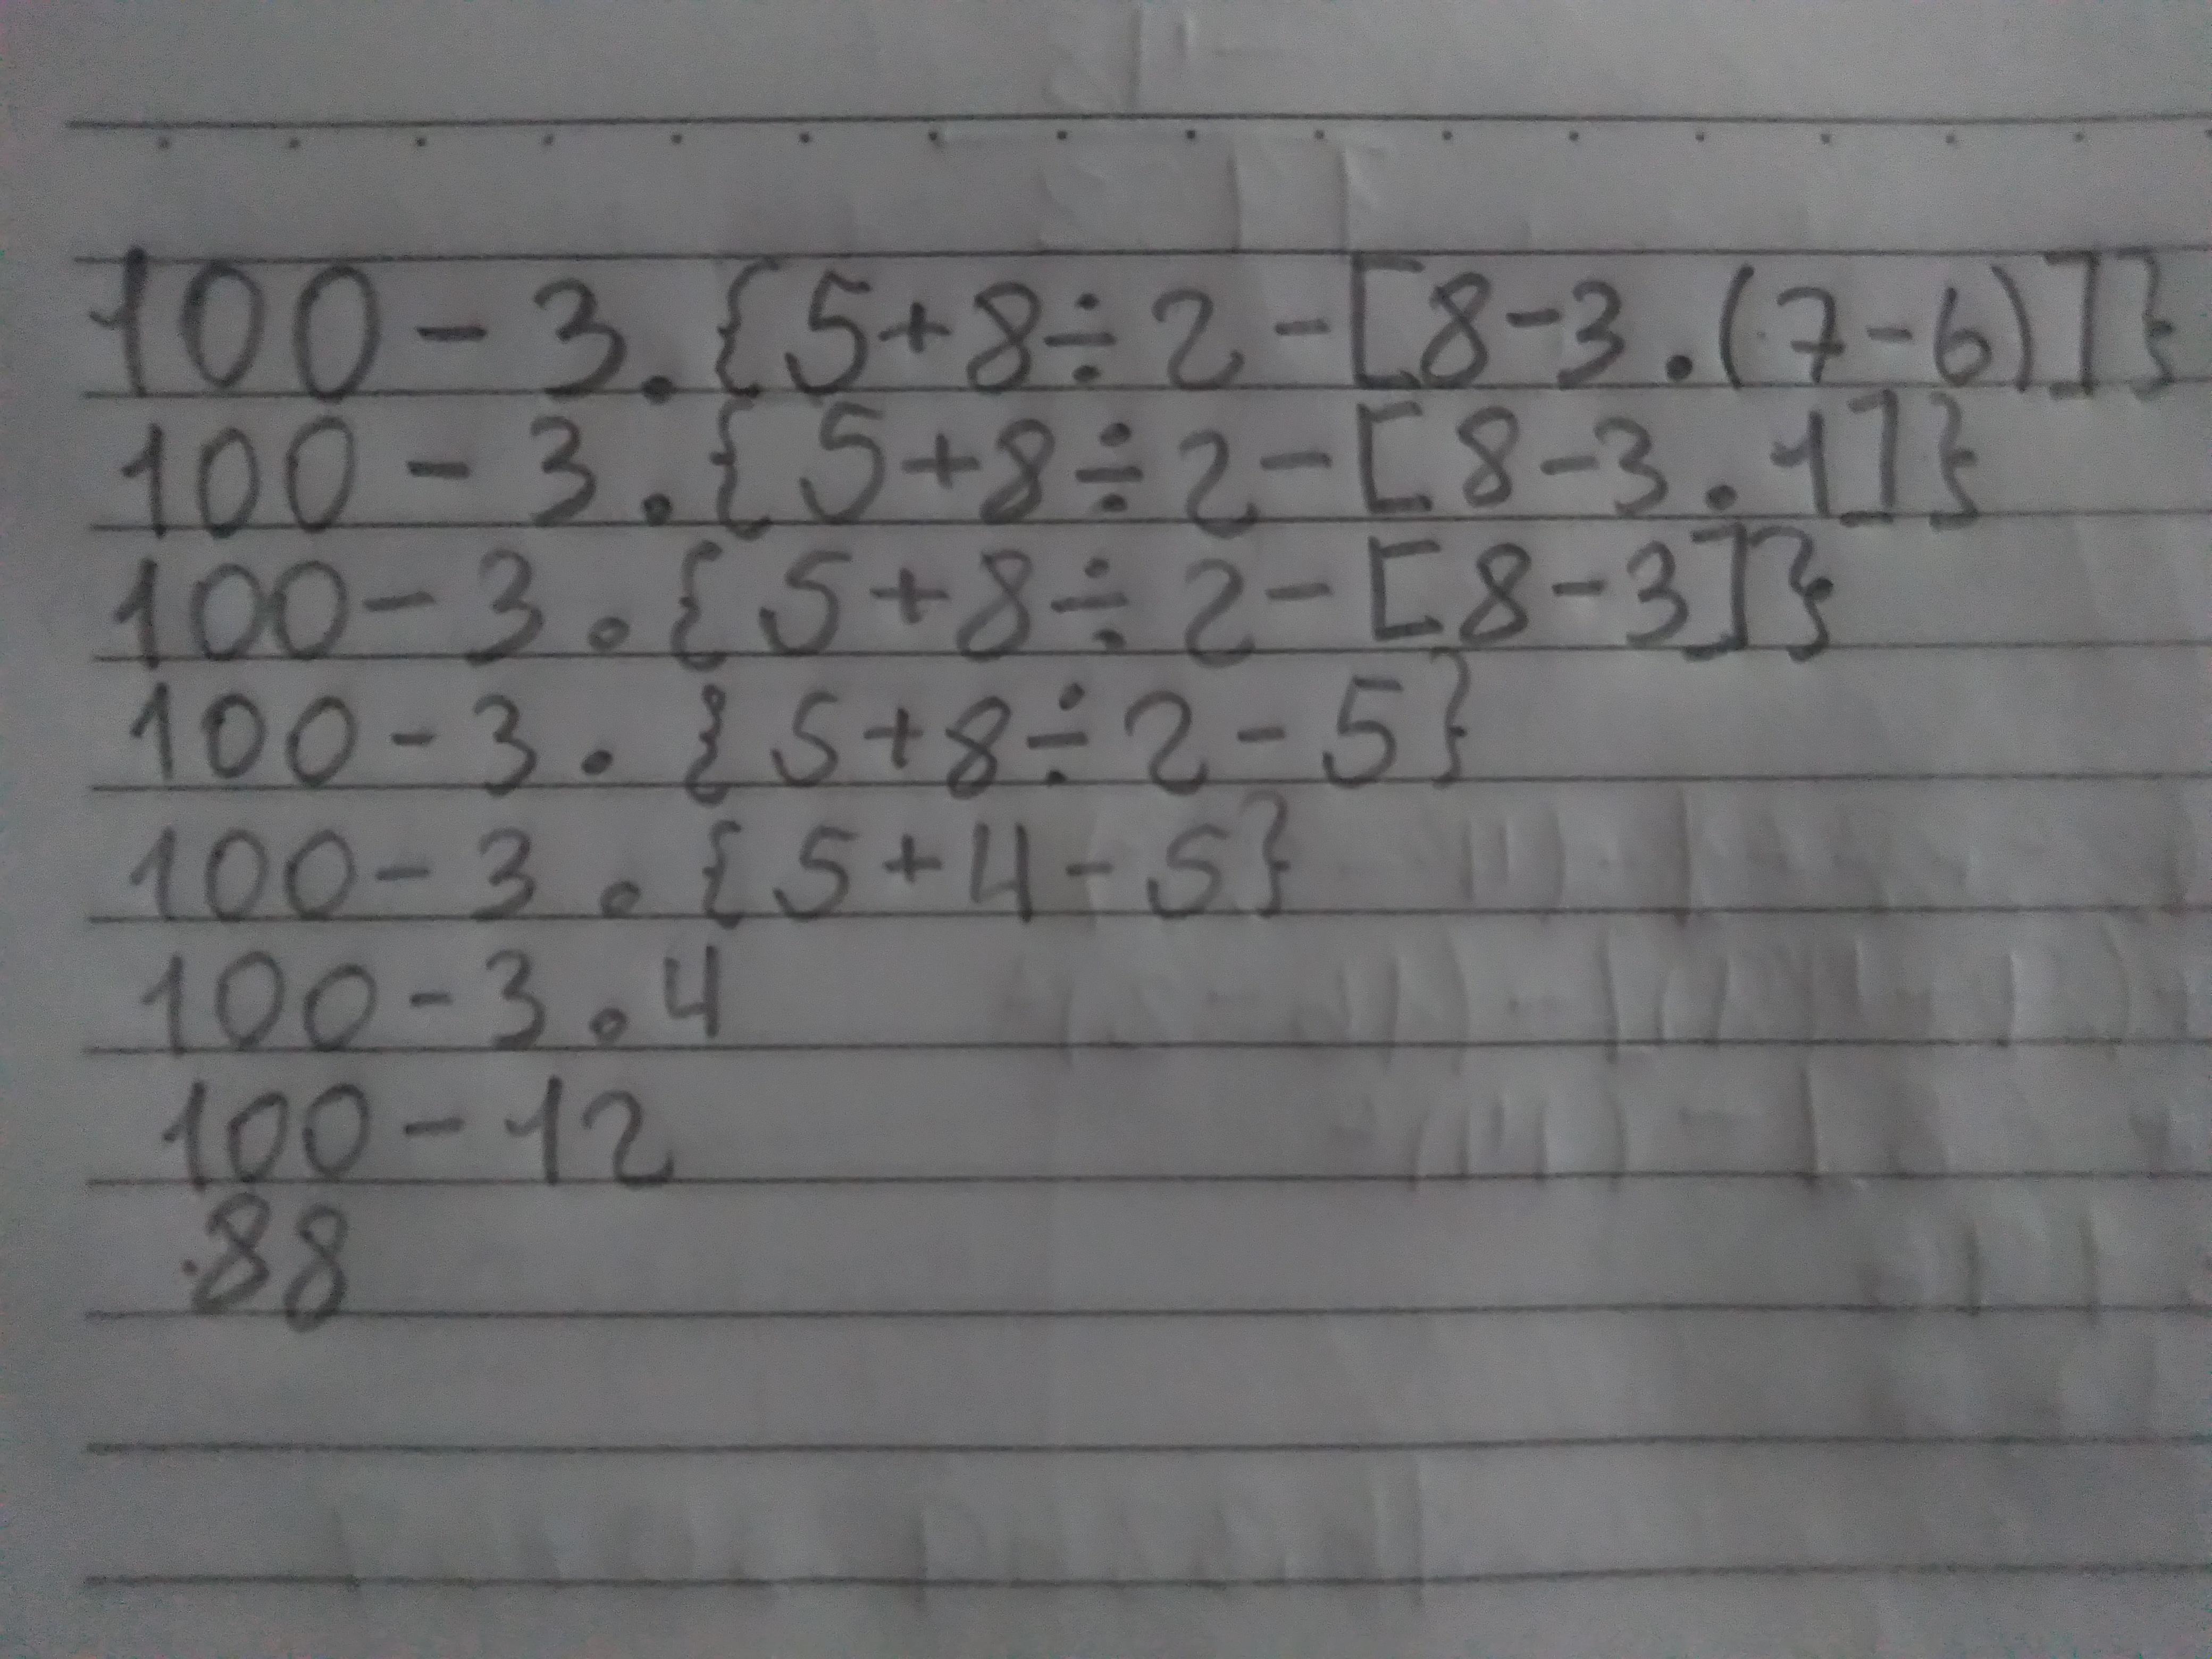 100 - 3.{5+8÷2-[8-3.(7-6)]}
100 - 3.{5+8÷2-[8-3.1]}
100 - 3.{5+8÷2-[8-3]}
100 - 3.{5+8÷2-5}
100 - 3.{5+4-5}
100 - 3.4
100 - 12
88